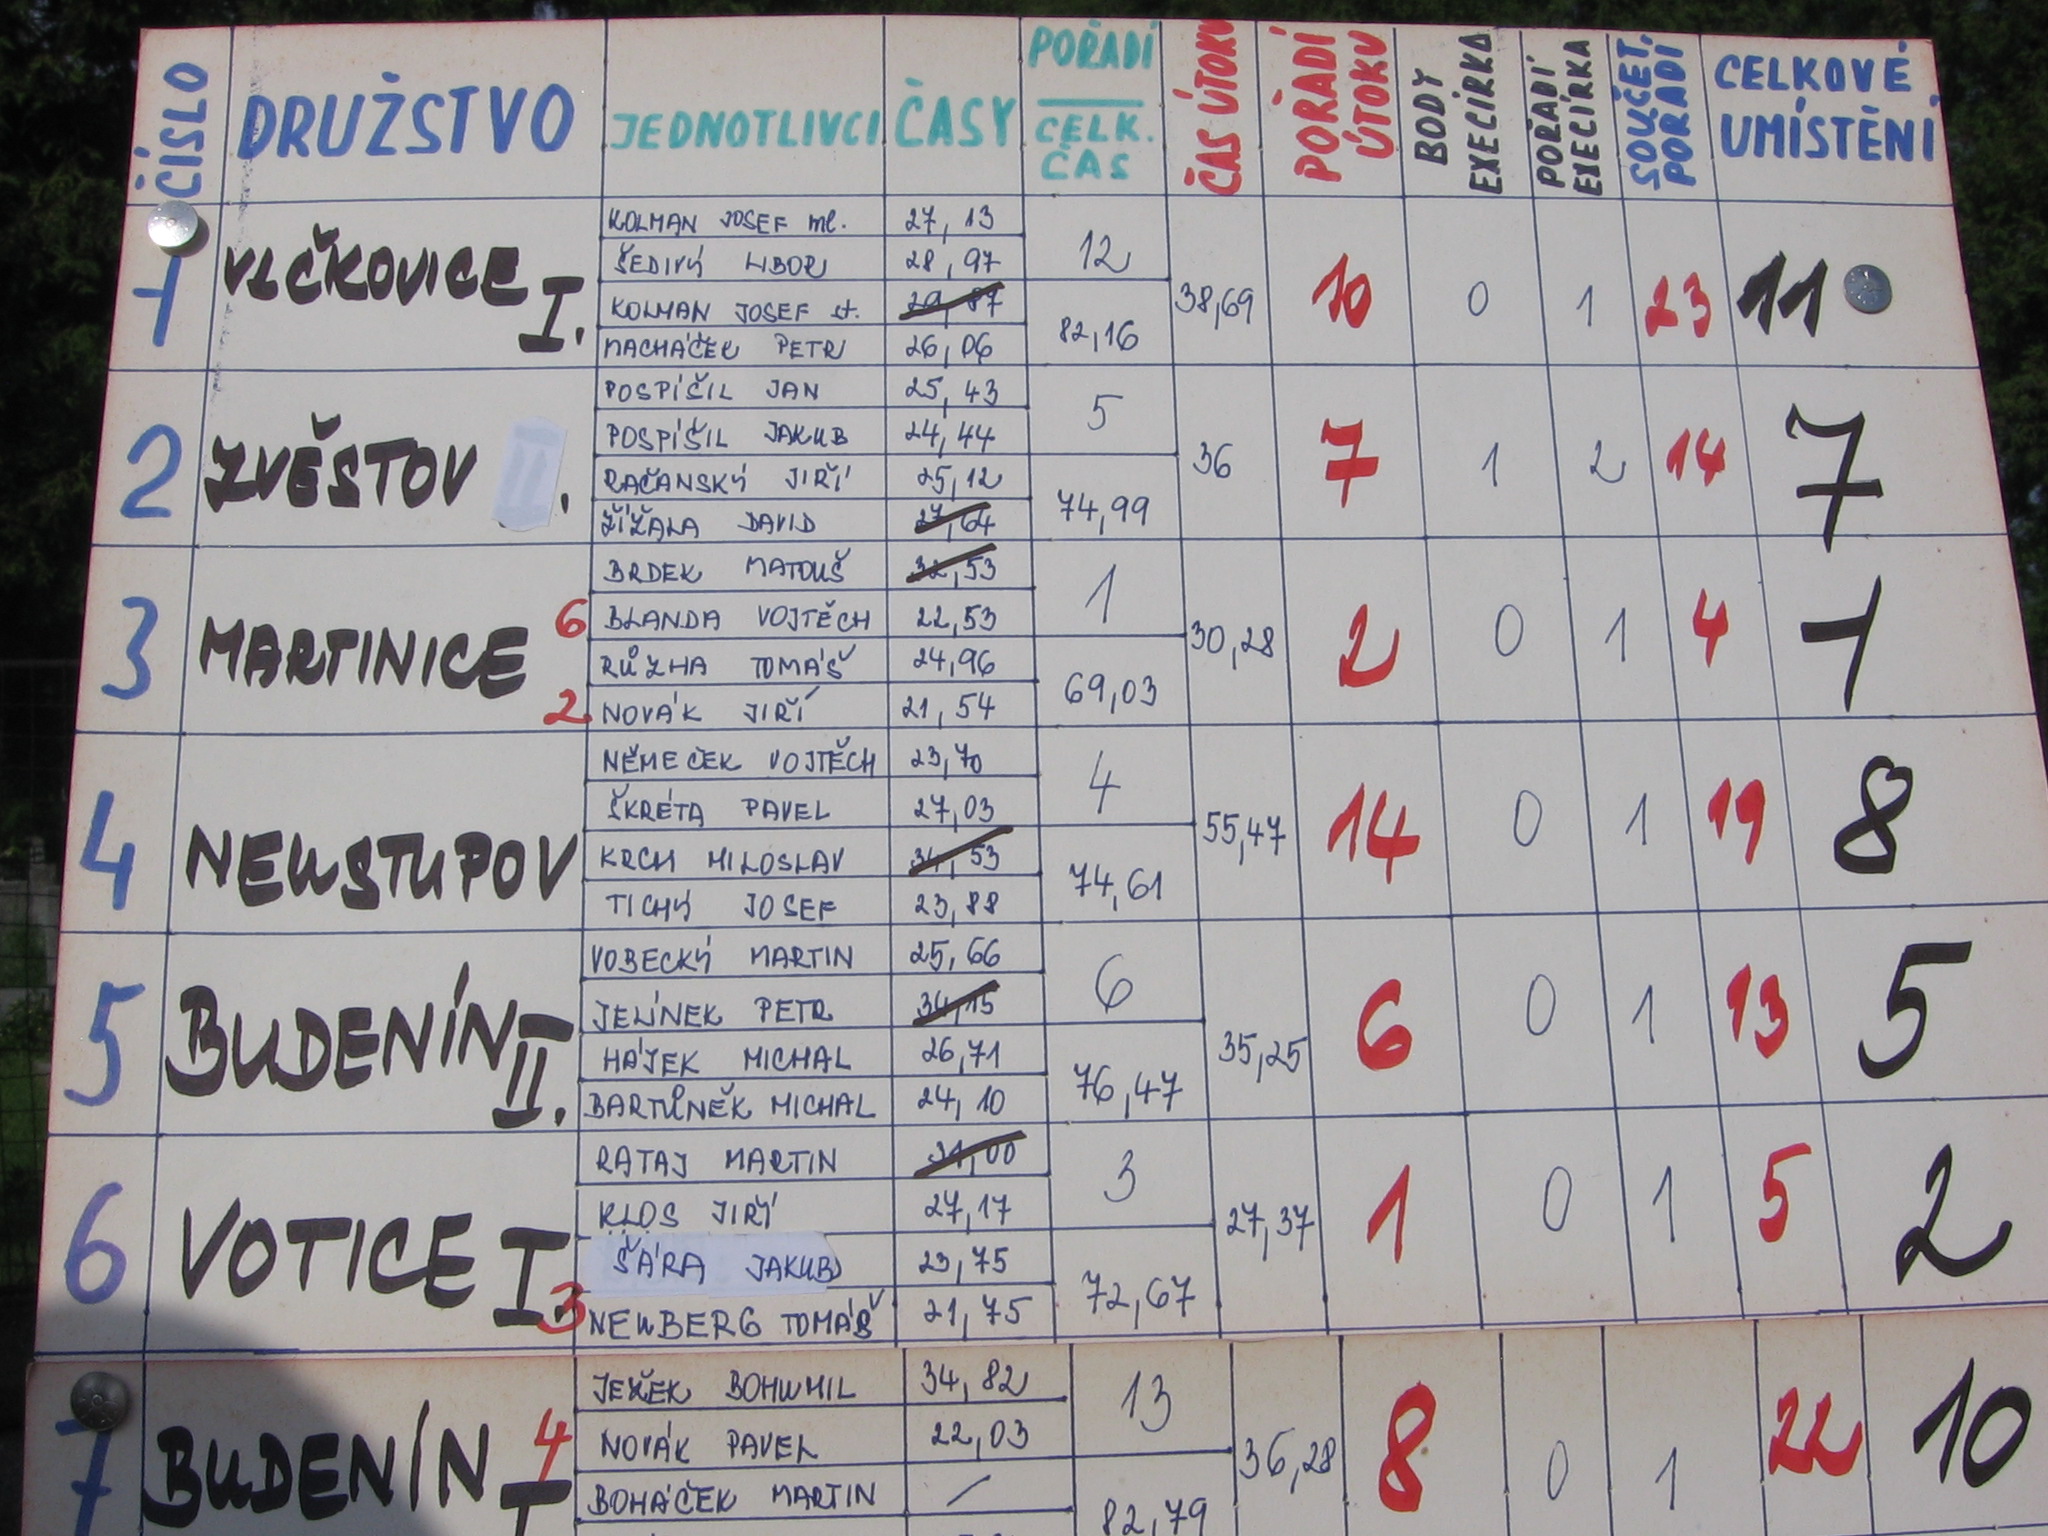 ČÍSLO DRUŽSTVO JEDNOTLIVCI ČASY POŘADÍ CELK. ČAS ČAS ÚTOKU POŘADÍ ÚTOKU BODY EXECÍRKA POŘADÍ EXECÍRKA SOUČET. POŘADÍ CELKOVÉ. UMÍSTĚNÍ
1 VLČKOVICE I. 12 82,16 38,69 10 0 1 23 11
KOLMAN JOSEF ml. 27,13
ŠEDIVÝ LIBOR 28,97
KOLMAN JOSEF st. 29,87
MACHÁČEK PETR 26,06
2 ZVĚSTOV . 5 74,99 36 7 1 2 14 7
POSPÍŠIL JAN 25,43
POSPÍŠIL JAKUB 24,44
RAČANSKÝ JIŘÍ 25,12
ŽÍŽALA DAVID 27,64
3 MARTINICE 1 69,03 30,28 2 0 1 4 1
BRDEK MATOUŠ 32,53
6 BLANDA VOJTĚCH 22,53
RŮZHA TOMÁŠ 24,96
2 NOVÁK JIŘÍ 21,54
4 NEUSTUPOV 4 74,61 55,47 14 0 1 19 8
NĚMEČEK VOJTĚCH 23,70
ŠKRÉTA PAVEL 27,03
KRCH MILOSLAV 34,53
TICHÝ JOSEF 23,88
5 BUDENÍN II. 6 76,47 35,25 6 0 1 13 5
VOBECKÝ MARTIN 25,66
JELÍNEK PETR 34,15
HÁJEK MICHAL 26,71
BARTŮNĚK MICHAL 24,10
6 VOTICE I. 3 72,67 27,37 1 0 1 5 2
RATAJ MARTIN 31,00
KLOS JIŘÍ 27,17
ŠÁRA JAKUB 23,75
3 NEUBERG TOMÁŠ 21,75
7 BUDENÍN I 13 82,79 36,28 8 0 1 22 10
JEŽEK BOHUMIL 34,82
4 NOVÁK PAVEL 22,03
BOHÁČEK MARTIN /